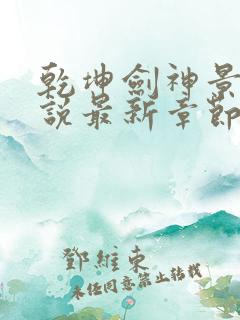 乾坤劍神景
說最新章節
鄧維東
未经同意禁止转载